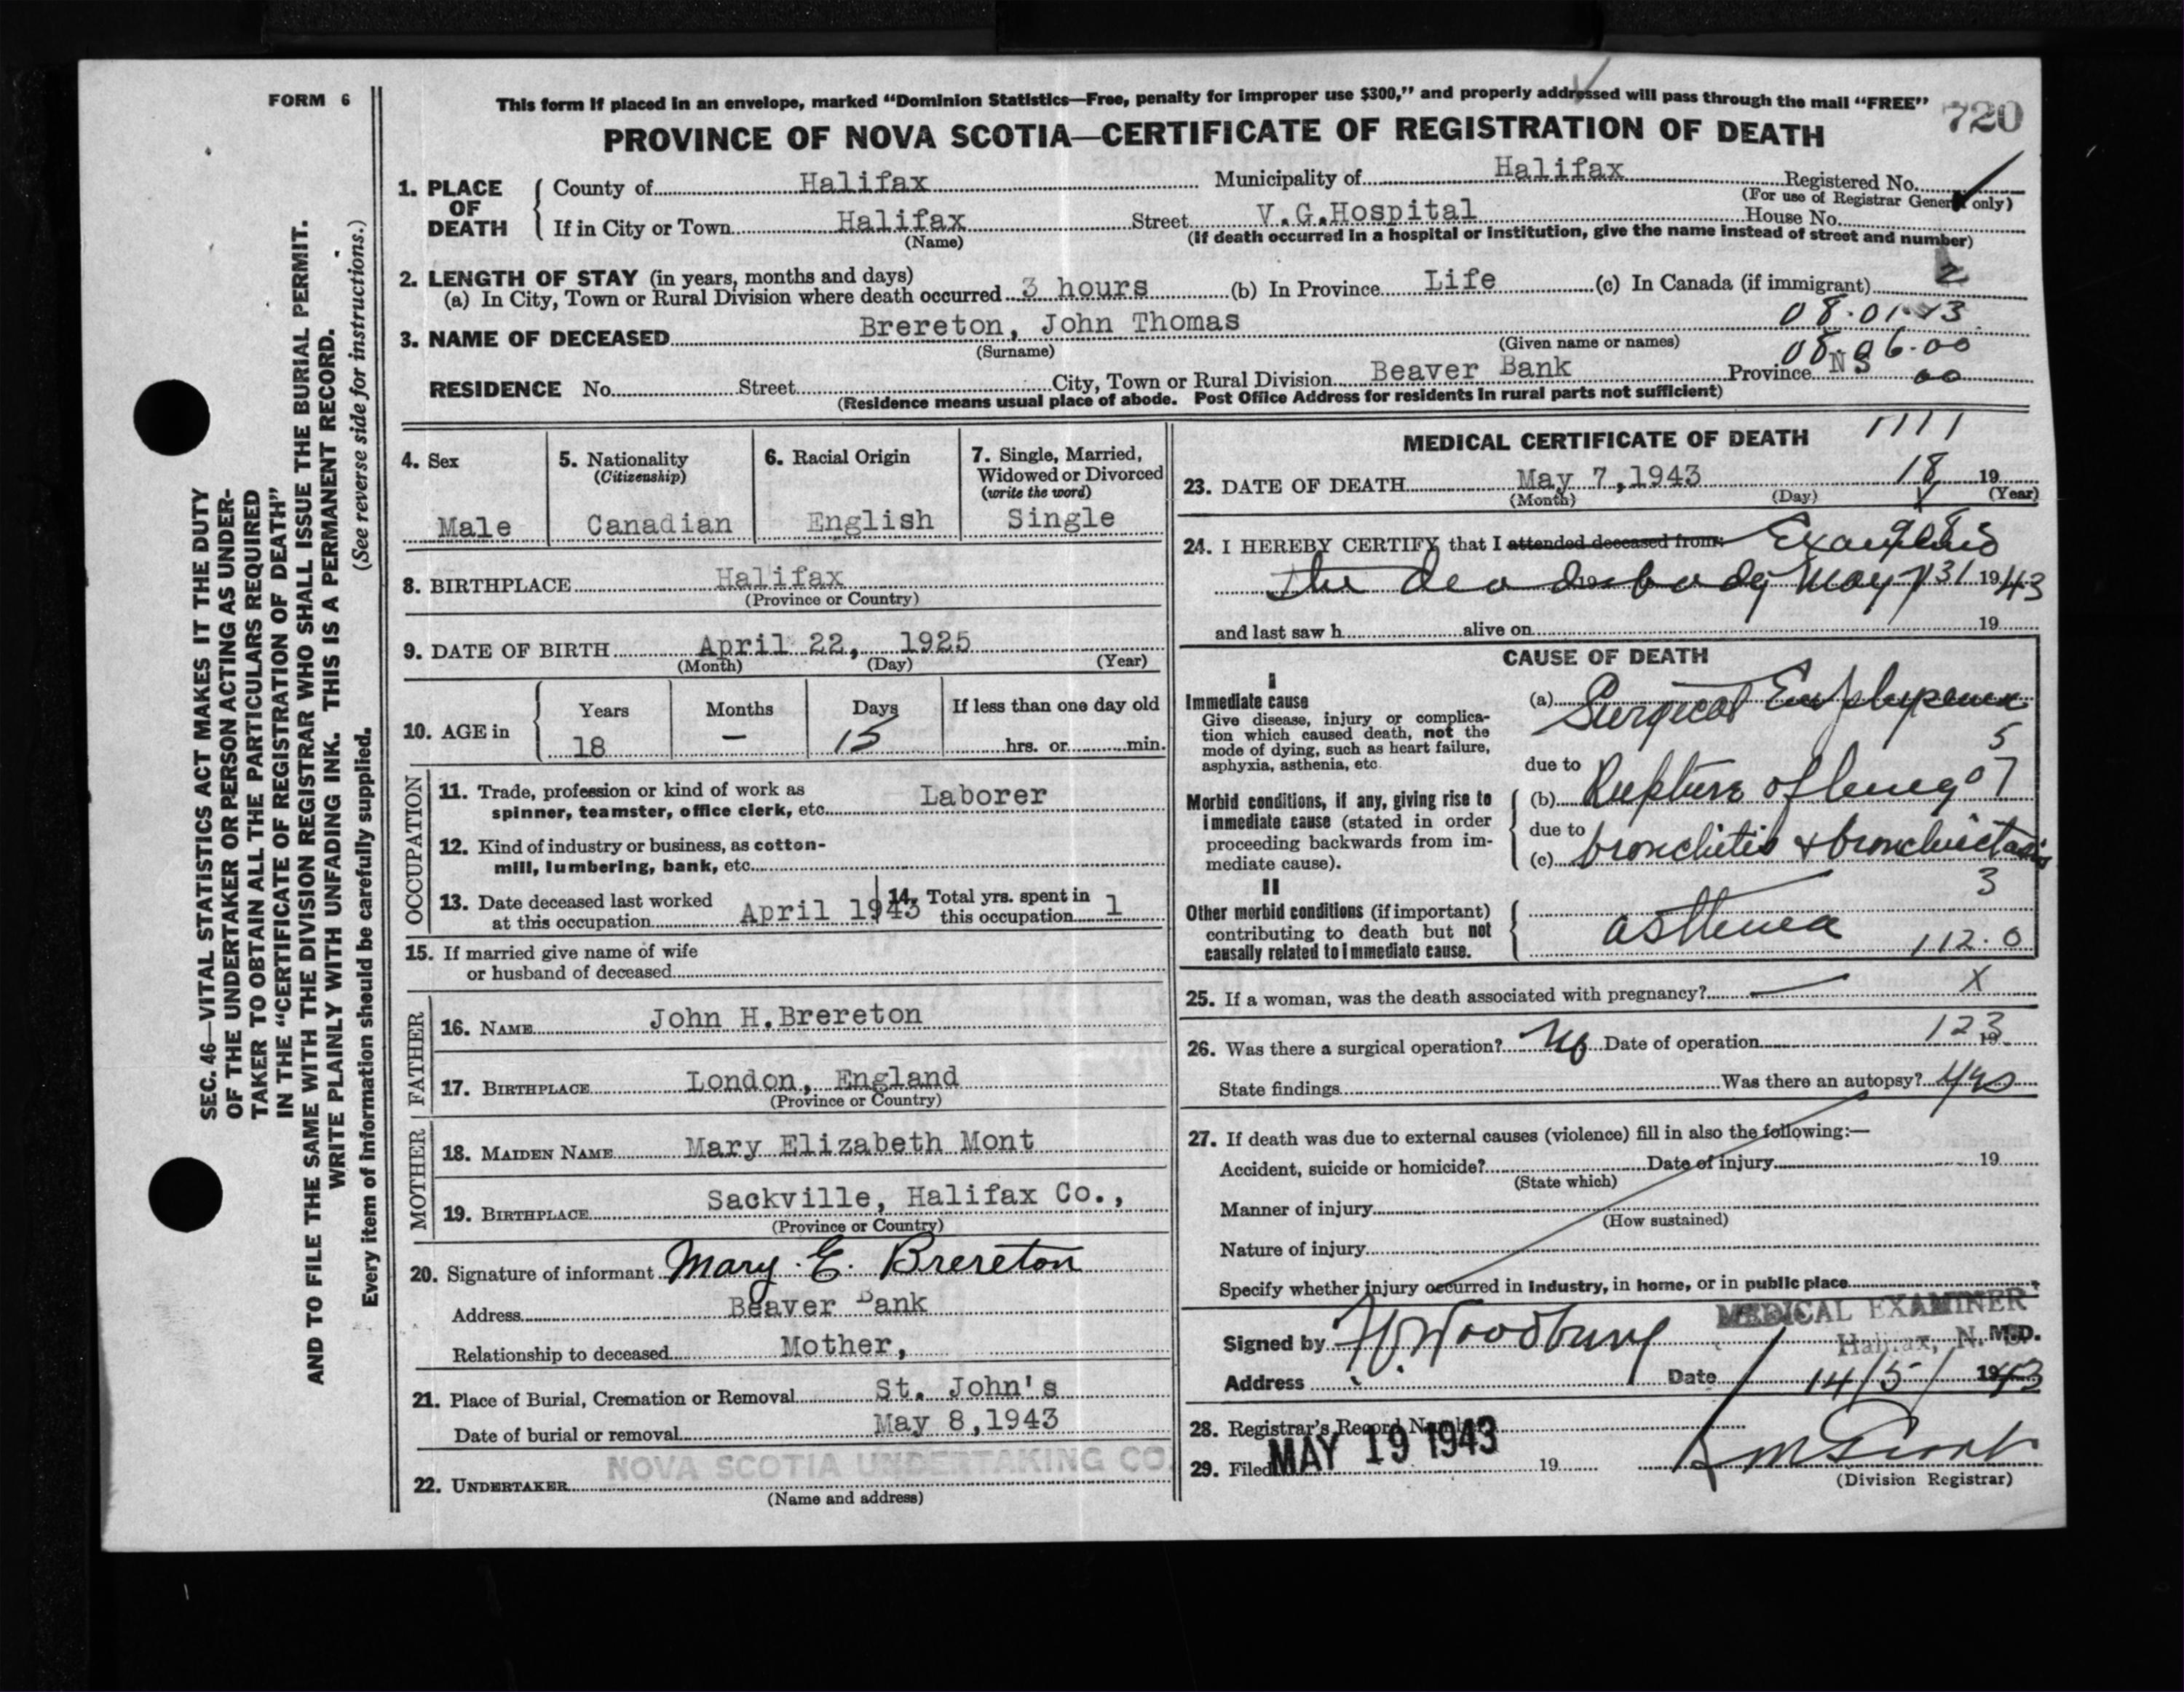 FORM 6
This form if placed in an envelope, marked “Dominion Statistics—Free, penalty for improper use $300,” and properly addressed will pass through the mail “FREE”
720
PROVINCE OF NOVA SCOTIA—CERTIFICATE OF REGISTRATION OF DEATH
1. PLACE OF DEATH
County of Halifax Municipality of Halifax Registered No.
(For use of Registrar General only)
If in City or Town Halifax Street V.G.Hospital House No.
(Name) (If death occurred in a hospital or institution, give the name instead of street and number)
2
2. LENGTH OF STAY (in years, months and days)
(a) In City, Town or Rural Division where death occurred 3 hours (b) In Province Life (c) In Canada (if immigrant)
08.01.13
3. NAME OF DECEASED Brereton, John Thomas
(Surname) (Given name or names)
08.06.00
RESIDENCE No. Street City, Town or Rural Division Beaver Bank Province N S
00
(Residence means usual place of abode. Post Office Address for residents in rural parts not sufficient)
4. Sex
Male
5. Nationality
(Citizenship)
Canadian
6. Racial Origin
English
7. Single, Married,
Widowed or Divorced
(write the word)
Single
8. BIRTHPLACE Halifax
(Province or Country)
9. DATE OF BIRTH April 22, 1925
(Month) (Day) (Year)
10. AGE in
Years Months Days If less than one day old
18 — 15 hrs. or min.
OCCUPATION
11. Trade, profession or kind of work as
spinner, teamster, office clerk, etc. Laborer
12. Kind of industry or business, as cotton-
mill, lumbering, bank, etc.
13. Date deceased last worked
at this occupation April 1943
14. Total yrs. spent in
this occupation 1
15. If married give name of wife
or husband of deceased
FATHER
16. NAME John H.Brereton
17. BIRTHPLACE London, England
(Province or Country)
MOTHER
18. MAIDEN NAME Mary Elizabeth Mont
19. BIRTHPLACE Sackville, Halifax Co.,
(Province or Country)
20. Signature of informant Mary. E. Brereton
Address Beaver Bank
Relationship to deceased Mother,
21. Place of Burial, Cremation or Removal St. John's
Date of burial or removal May 8,1943
NOVA SCOTIA UNDERTAKING CO.
22. UNDERTAKER
(Name and address)
MEDICAL CERTIFICATE OF DEATH
1111
23. DATE OF DEATH May 7,1943 18 19
(Month) (Day) (Year)
24. I HEREBY CERTIFY that I attended deceased from: Examined
the dead body May 7 31 1943
and last saw h alive on 19
CAUSE OF DEATH
I
Immediate cause
Give disease, injury or complica-
tion which caused death, not the
mode of dying, such as heart failure,
asphyxia, asthenia, etc.
(a) Surgical Emphysema
5
due to
Morbid conditions, if any, giving rise to
immediate cause (stated in order
proceeding backwards from im-
mediate cause).
(b) Rupture of lung 07
due to
(c) bronchitis & bronchiectasis
3
II
Other morbid conditions (if important)
contributing to death but not
causally related to immediate cause.
asthma 112.0
25. If a woman, was the death associated with pregnancy? — X
26. Was there a surgical operation? No Date of operation 123 19
State findings Was there an autopsy? yes
27. If death was due to external causes (violence) fill in also the following:—
Accident, suicide or homicide? Date of injury 19
(State which)
Manner of injury
(How sustained)
Nature of injury
Specify whether injury occurred in industry, in home, or in public place
MEDICAL EXAMINER
Halifax, N. S.
Signed by Woodbury M.D.
Address Date 14/5/ 1943
28. Registrar's Record Number
MAY 19 1943
29. Filed 19
(Division Registrar)
SEC. 46—VITAL STATISTICS ACT MAKES IT THE DUTY
OF THE UNDERTAKER OR PERSON ACTING AS UNDER-
TAKER TO OBTAIN ALL THE PARTICULARS REQUIRED
IN THE “CERTIFICATE OF REGISTRATION OF DEATH”
AND TO FILE THE SAME WITH THE DIVISION REGISTRAR WHO SHALL ISSUE THE BURIAL PERMIT.
WRITE PLAINLY WITH UNFADING INK. THIS IS A PERMANENT RECORD.
Every item of information should be carefully supplied. (See reverse side for instructions.)